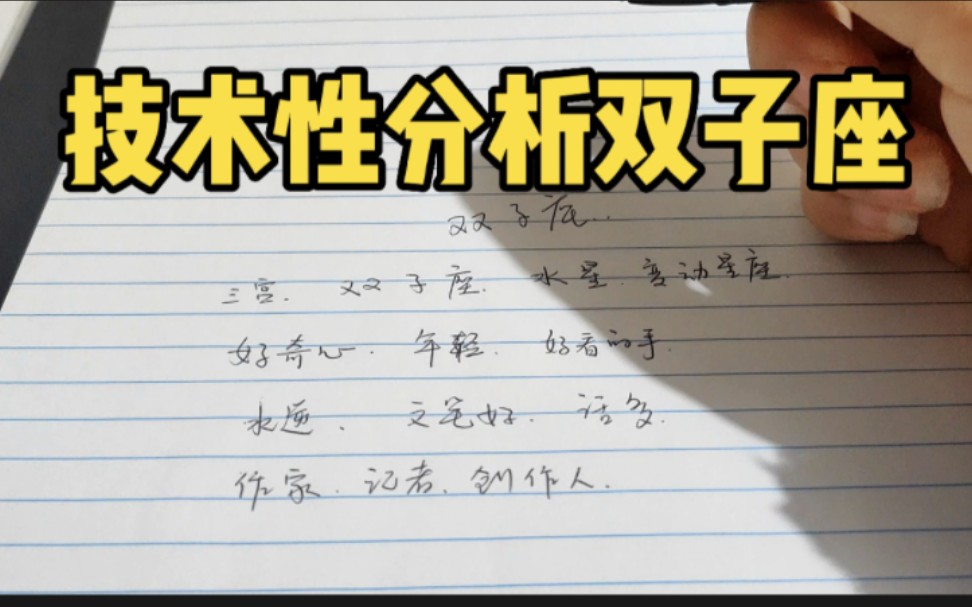 技术性分析双子座
双子座..
三宫. 双子座. 水星. 变动星座.
好奇心. 年轻. 好看的手.
水逆. 文笔好. 话多.
作家. 记者. 创作人.